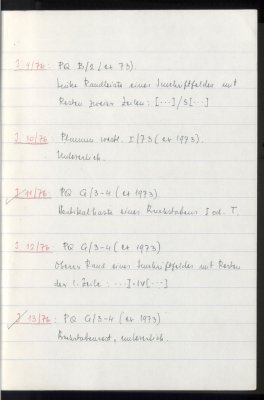 J 9/76: PQ B/2 (et 73).
linke Randleiste eines Inschriftfeldes mit
Resten zweier Zeilen: [---]/S[---]
J 10/76: Planum westl. I/73 (et 1973).
Unleserlich.
J 11/76: PQ G/3-4 (et 1973).
Vertikalhaste eines Buchstabens I od. T.
J 12/76: PQ G/3-4 (et 1973)
Oberer Rand eines Inschriftfeldes mit Resten
der 1. Zeile: ---]·IV[---]
J 13/76: PQ G/3-4 (et 1973)
Buchstabenrest, unleserlich.